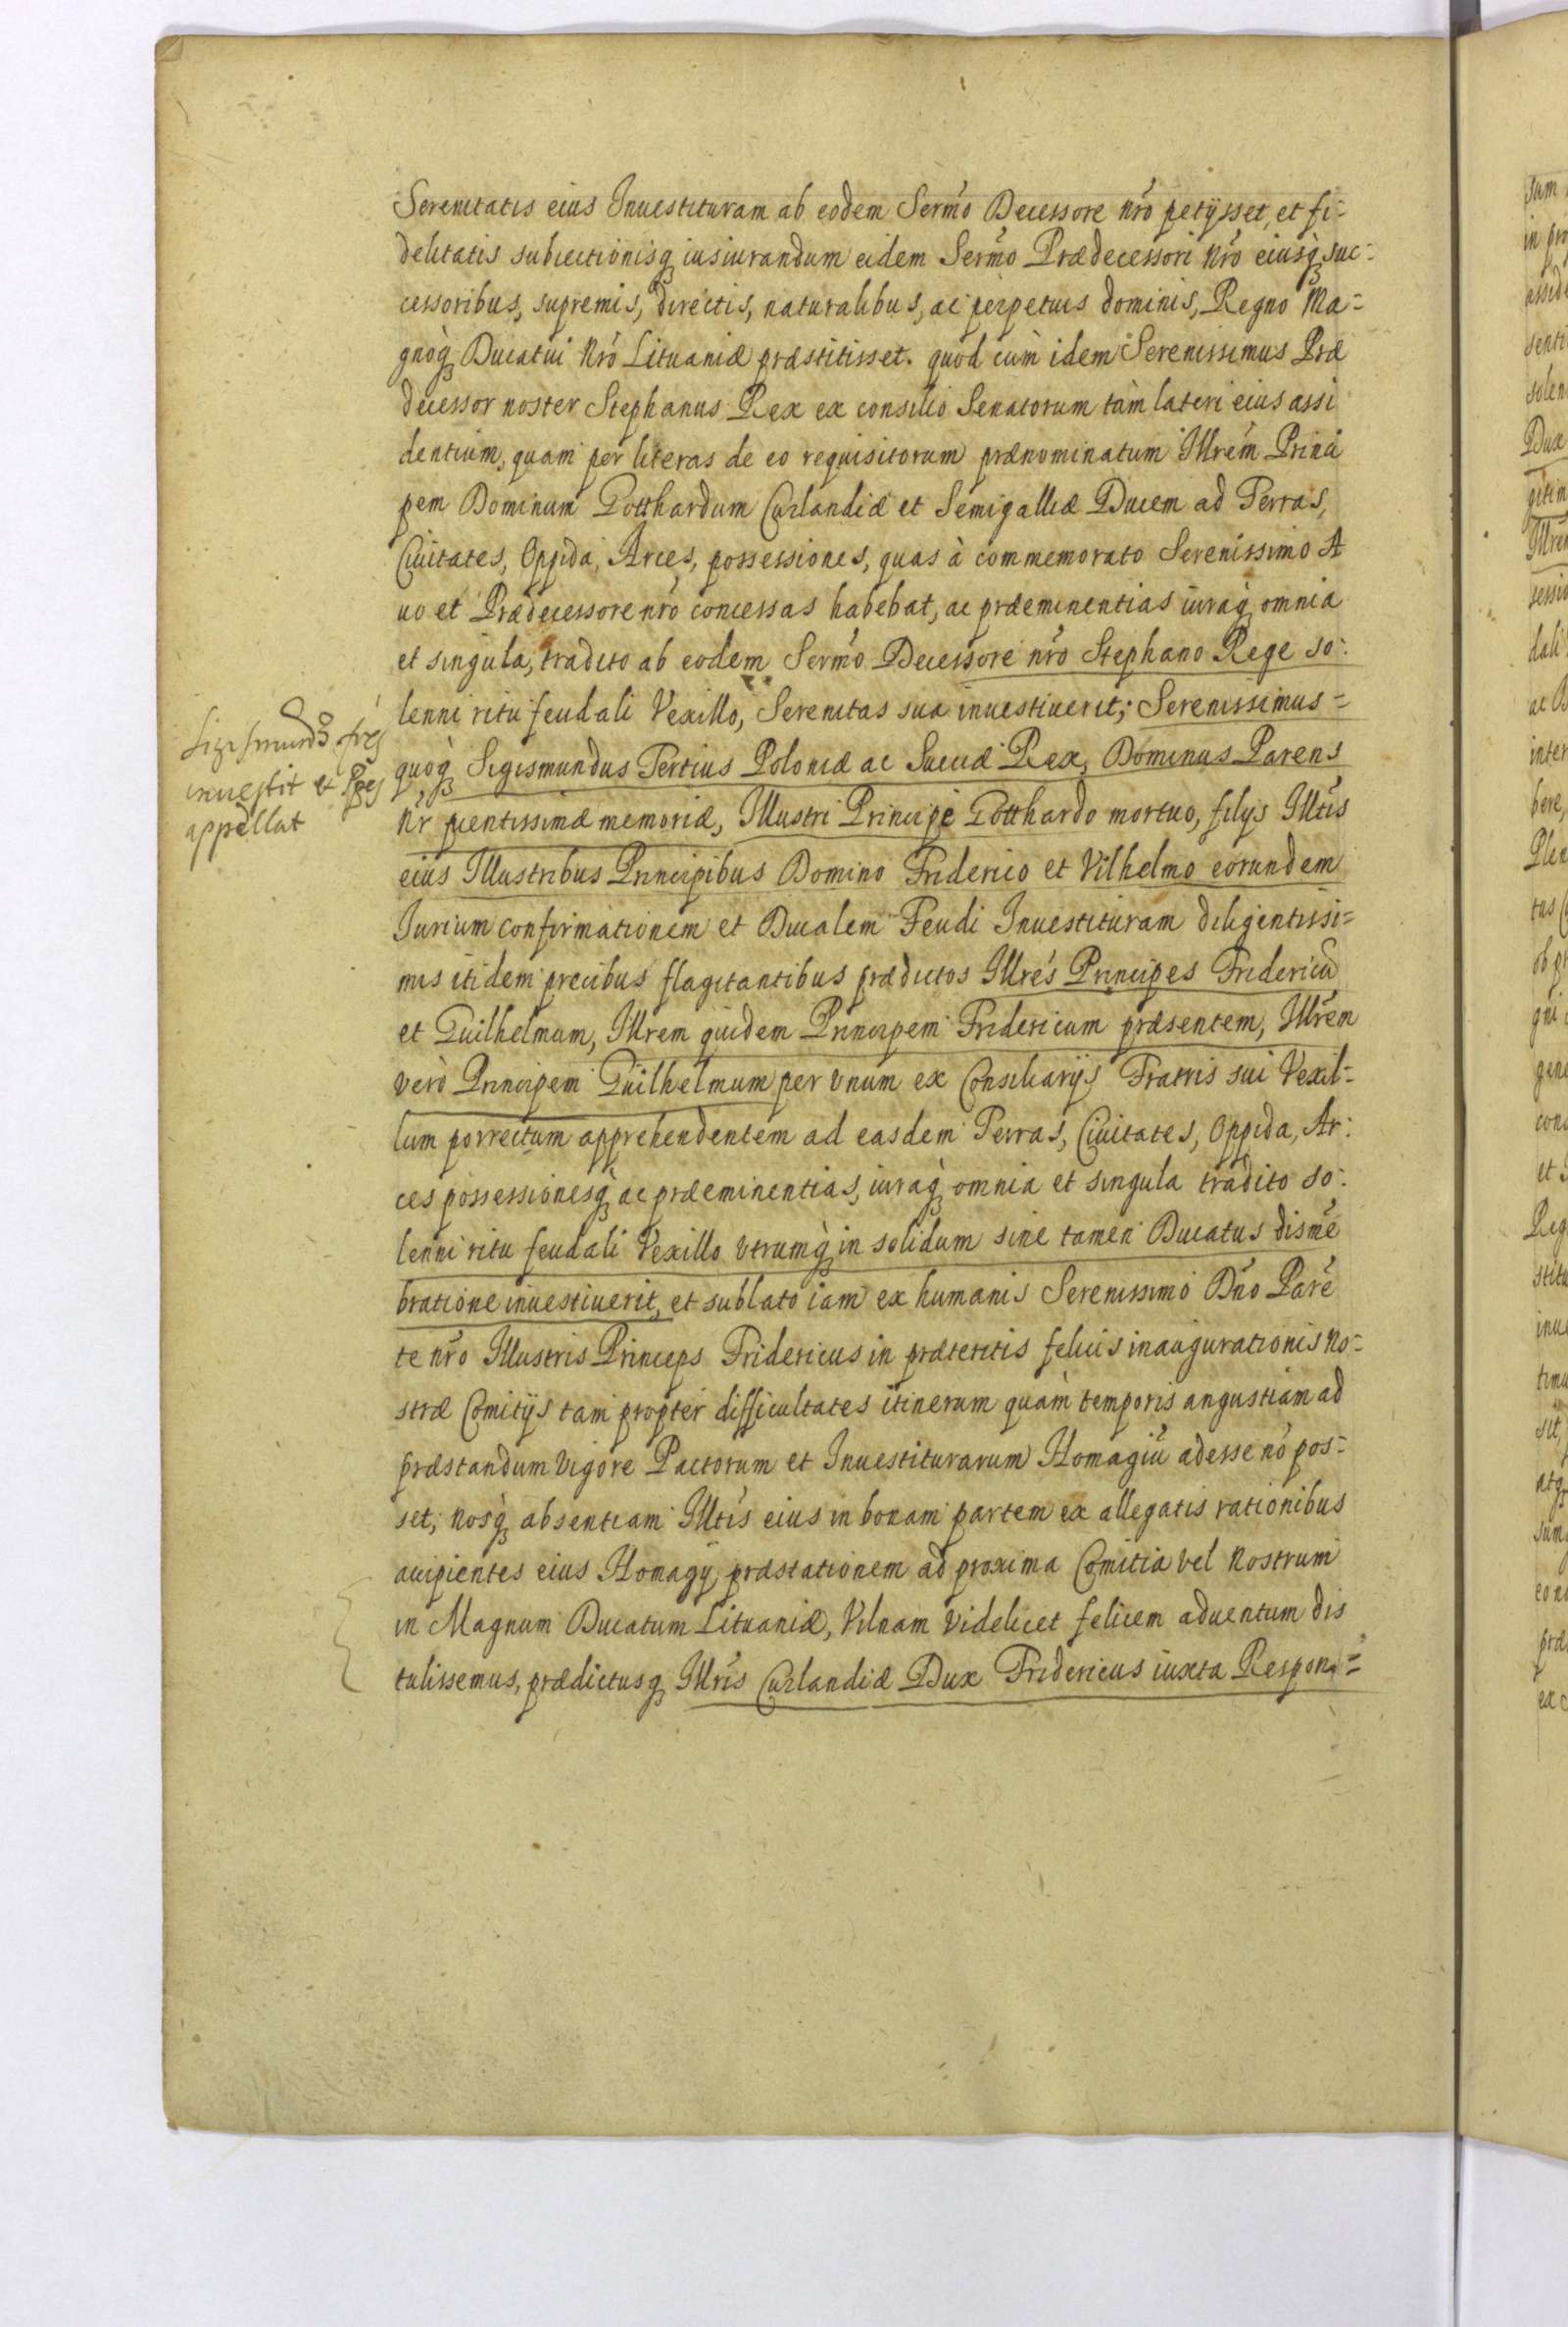 Serenitatis eius Inuestituram ab eodem Sermo Decessore nro petijsset, et fi-
delitatis subiectionisq iusiurandum eidem Sermo Prædecessori Nro eiusq suc-
cessoribus, supremis, directis, naturalibus, ac perpetuis dominis, Regno Ma-
gnoq Ducatui Nro Lituaniæ præstitisset. quod cùm idem Serenissimus Præ
decessor noster Stephanus Rex ex consilio Senatorum tàm lateri eius assi
dentium, quam per literas de eo requisitorum prænominatum Illrem Princi
pem Dominum Gotthardum Curlandiæ et Semigalliæ Ducem ad Terras,
Ciuitates, Oppida, Arces, possessiones, quas à commemorato Serenissimo A
uo et Prædecessore nro concessas habebat, ac præeminentias iuraq omnia
et singula, tradito ab eodem Sermo Decessore nro Stephano Rege so-
lenni ritu feudali Vexillo, Serenitas sua inuestiuerit; Serenissimus-
quoq Sigismundus Tertius Poloniæ ac Sueciæ Rex, Dominus Parens
Nr pientissimæ memoriæ, Illustri Principe Gotthardo mortuo, filijs Illtis
eius Illustribus Principibus Domino Friderico et Vilhelmo eorundem
Iurium confirmationem et Ducalem Feudi Inuestituram diligentissi-
mis itidem precibus flagitantibus prædictos Illres Principes Fridericũ
et Guilhelmum, Illrem quidem Principem Fridericum præsentem, Illrem
verò Principem Guilhelmum per vnum ex Consiliarijs Fratris sui Vexil-
lum porrectum apprehendentem ad easdem Terras, Ciuitates, Oppida, Ar-
ces possessionesq ac præeminentias, iuraq omnia et singula tradito so-
lenni ritu feudali Vexillo vtrumq in solidum sine tamen Ducatus dismẽ
bratione inuestiuerit, et sublato iam ex humanis Serenissimo Dno Parẽ
te nro Illustris Princeps Fridericus in præteritis felicis inaugurationis No-
stræ Comitijs tam propter difficultates itinerum quàm temporis angustiam ad
præstandum vigore Pactorum et Inuestiturarum Homagiũ adesse nõ pos-
set, Nosq absentiam Illtis eius in bonam partem ex allegatis rationibus
accipientes eius Homagij præstationem ad proxima Comitia vel Nostrum
in Magnum Ducatum Lituaniæ, Vilnam videlicet felicem aduentum dis
tulissemus, prædictusq Illris Curlandiæ Dux Fridericus iuxta Respon-
Sigismund9 fres
inuestit et
appellat